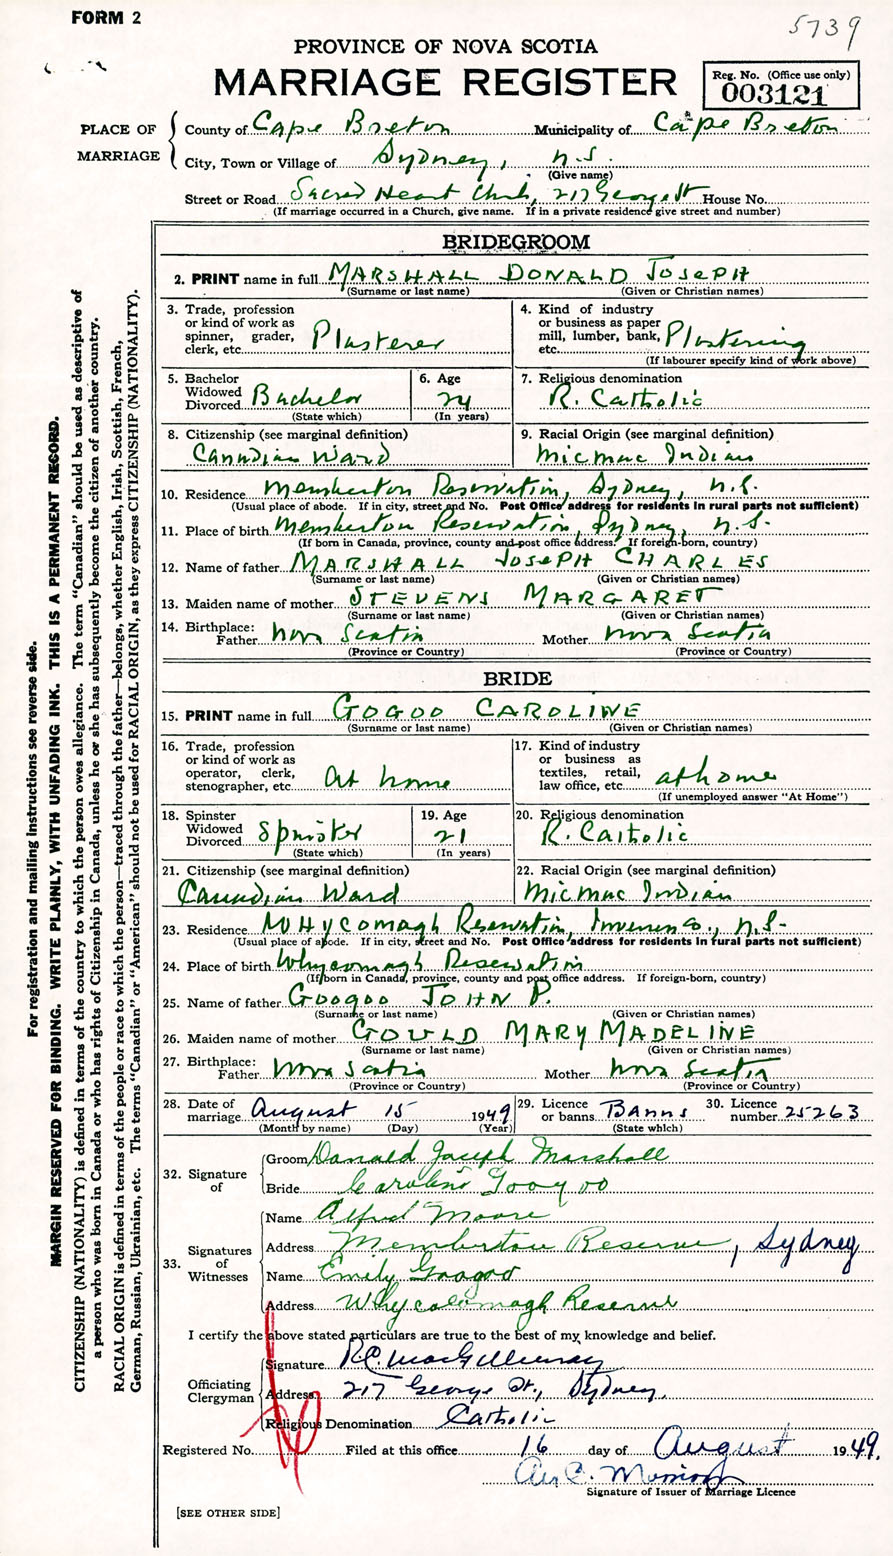 FORM 2
5739
PROVINCE OF NOVA SCOTIA
MARRIAGE REGISTER
Reg. No. (Office use only)
003121
PLACE OF MARRIAGE
County of Cape Breton Municipality of Cape Breton
City, Town or Village of Sydney, N.S.
(Give name)
Street or Road Sacred Heart Church, 217 George St House No.
(If marriage occurred in a Church, give name. If in a private residence give street and number)
BRIDEGROOM
2. PRINT name in full MARSHALL DONALD JOSEPH
(Surname or last name) (Given or Christian names)
3. Trade, profession or kind of work as spinner, grader, clerk, etc. Plasterer
4. Kind of industry or business as paper mill, lumber, bank, etc. Plastering
(If labourer specify kind of work above)
5. Bachelor Widowed Divorced Bachelor
(State which)
6. Age 24
(In years)
7. Religious denomination
R. Catholic
8. Citizenship (see marginal definition)
Canadian Ward
9. Racial Origin (see marginal definition)
Micmac Indian
10. Residence Memberton Reservation, Sydney, N.S.
(Usual place of abode. If in city, street and No. Post Office address for residents in rural parts not sufficient)
11. Place of birth Memberton Reservation, Sydney, N.S.
(If born in Canada, province, county and post office address. If foreign-born, country)
12. Name of father MARSHALL JOSEPH CHARLES
(Surname or last name) (Given or Christian names)
13. Maiden name of mother STEVENS MARGARET
(Surname or last name) (Given or Christian names)
14. Birthplace: Father Nova Scotia Mother Nova Scotia
(Province or Country) (Province or Country)
BRIDE
15. PRINT name in full GOGOO CAROLINE
(Surname or last name) (Given or Christian names)
16. Trade, profession or kind of work as operator, clerk, stenographer, etc. At home
17. Kind of industry or business as textiles, retail, law office, etc. at home
(If unemployed answer "At Home")
18. Spinster Widowed Divorced Spinster
(State which)
19. Age 21
(In years)
20. Religious denomination
R. Catholic
21. Citizenship (see marginal definition)
Canadian Ward
22. Racial Origin (see marginal definition)
Micmac Indian
23. Residence Whycomagh Reservation, Inverness Co., N.S.
(Usual place of abode. If in city, street and No. Post Office address for residents in rural parts not sufficient)
24. Place of birth Whycomagh Reservation
(If born in Canada, province, county and post office address. If foreign-born, country)
25. Name of father GOOGOO JOHN P.
(Surname or last name) (Given or Christian names)
26. Maiden name of mother GOULD MARY MADELINE
(Surname or last name) (Given or Christian names)
27. Birthplace: Father Nova Scotia Mother Nova Scotia
(Province or Country) (Province or Country)
28. Date of marriage August 15 1949
(Month by name) (Day) (Year)
29. Licence or banns BANNS
(State which)
30. Licence number 25263
32. Signature of
Groom Donald Joseph Marshall
Bride Caroline Googoo
33. Signatures of Witnesses
Name Alfred Moore
Address Memberton Reserve, Sydney
Name Emily Googoo
Address Whycocomagh Reserve
I certify the above stated particulars are true to the best of my knowledge and belief.
Officiating Clergyman
Signature R.C. MacGillivray
Address 217 George St., Sydney.
Religious Denomination Catholic
Registered No. Filed at this office 16 day of August 1949.
Signature of Issuer of Marriage Licence
[SEE OTHER SIDE]
For registration and mailing instructions see reverse side.
MARGIN RESERVED FOR BINDING. WRITE PLAINLY, WITH UNFADING INK. THIS IS A PERMANENT RECORD.
CITIZENSHIP (NATIONALITY) is defined in terms of the country to which the person owes allegiance. The term "Canadian" should be used as descriptive of
a person who was born in Canada or who has rights of Citizenship in Canada, unless he or she has subsequently become the citizen of another country.
RACIAL ORIGIN is defined in terms of the people or race to which the person—traced through the father—belongs, whether English, Irish, Scottish, French,
German, Russian, Ukrainian, etc. The terms "Canadian" or "American" should not be used for RACIAL ORIGIN, as they express CITIZENSHIP (NATIONALITY).